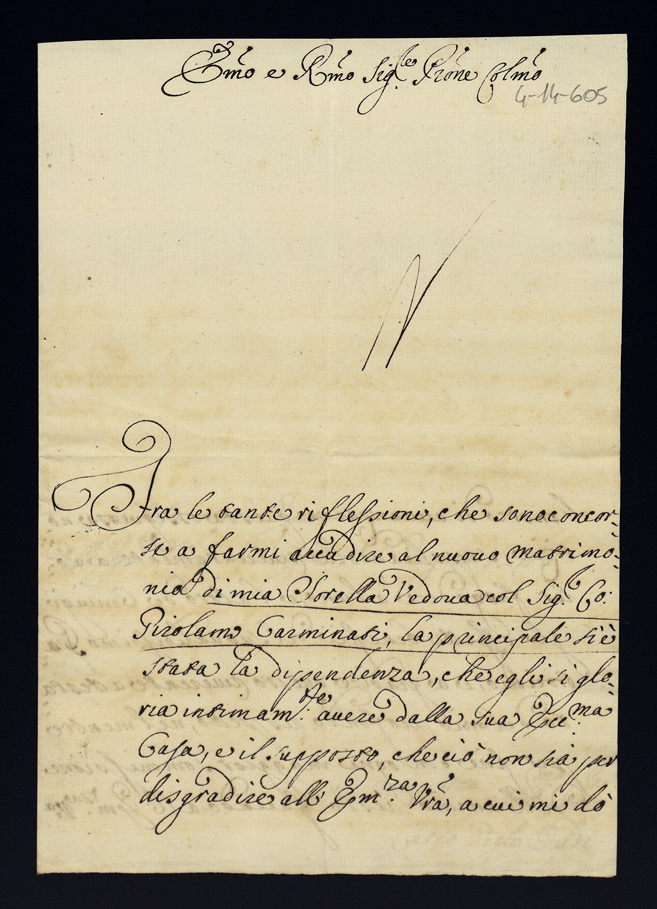 Em͂o e Rm͂o Sig.re Pron͂e Colm͂o
4-14-605
Fra le tante riflessioni, che sono concor-
se a farmi accudire al nuovo matrimo-
nio di mia Sorella Vedova col Sig.r Co:
Pirolamo Carminati, la principale si è
stata la dipendenza, che egli si glo-
ria intimam.te avere dalla sua Ecc.ma
Casa, e il supposto, che ciò non sia per
disgradire all' Em.za Vr͂a, a cui mi dò